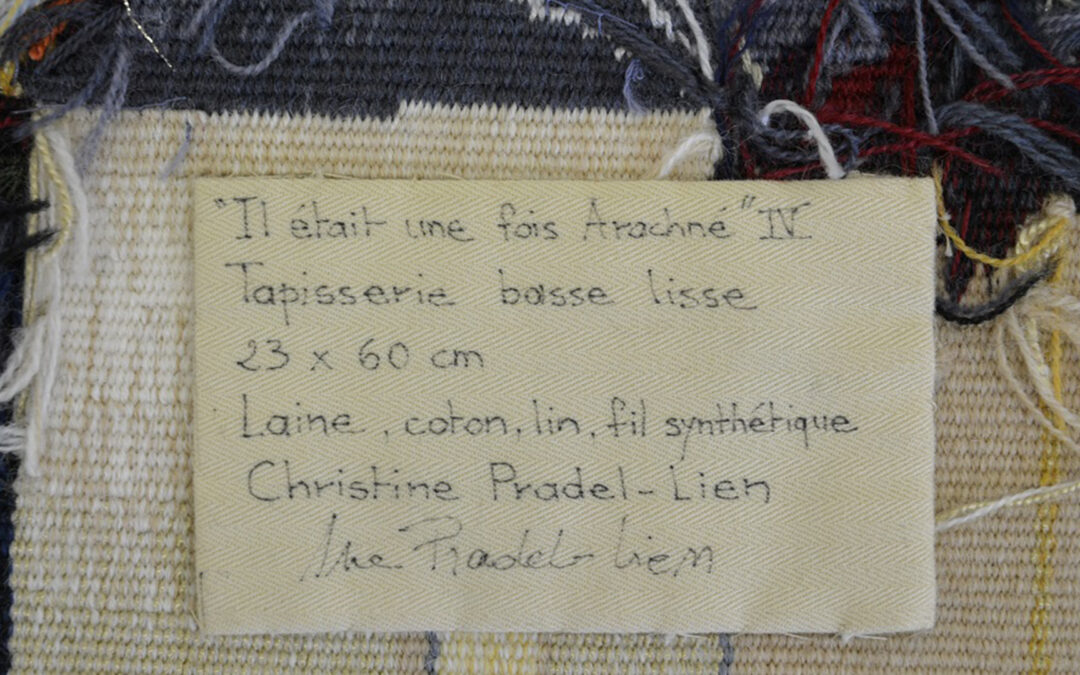 "Il était une fois Arachné" IV
Tapisserie basse lisse
23 x 60 cm
Laine, coton, lin, fil synthétique
Christine Pradel-Lien
Pradel-Lien